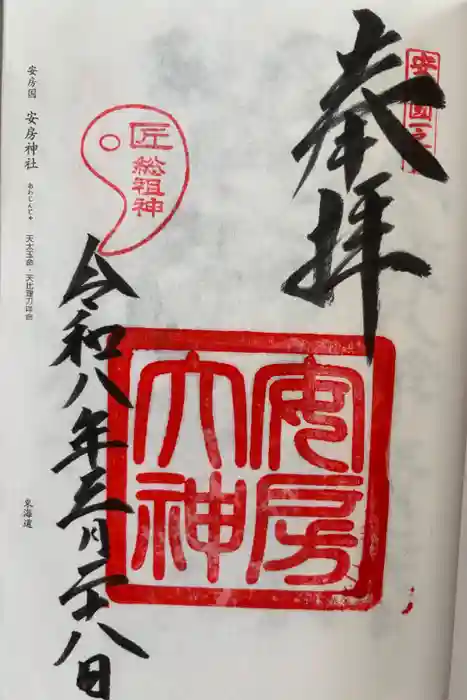 奉拝
安房国一之宮
安房大神
匠
総祖神
令和八年三月二十八日
安房国 安房神社 あわじんじゃ 天太玉命・天比理刀咩命
東海道